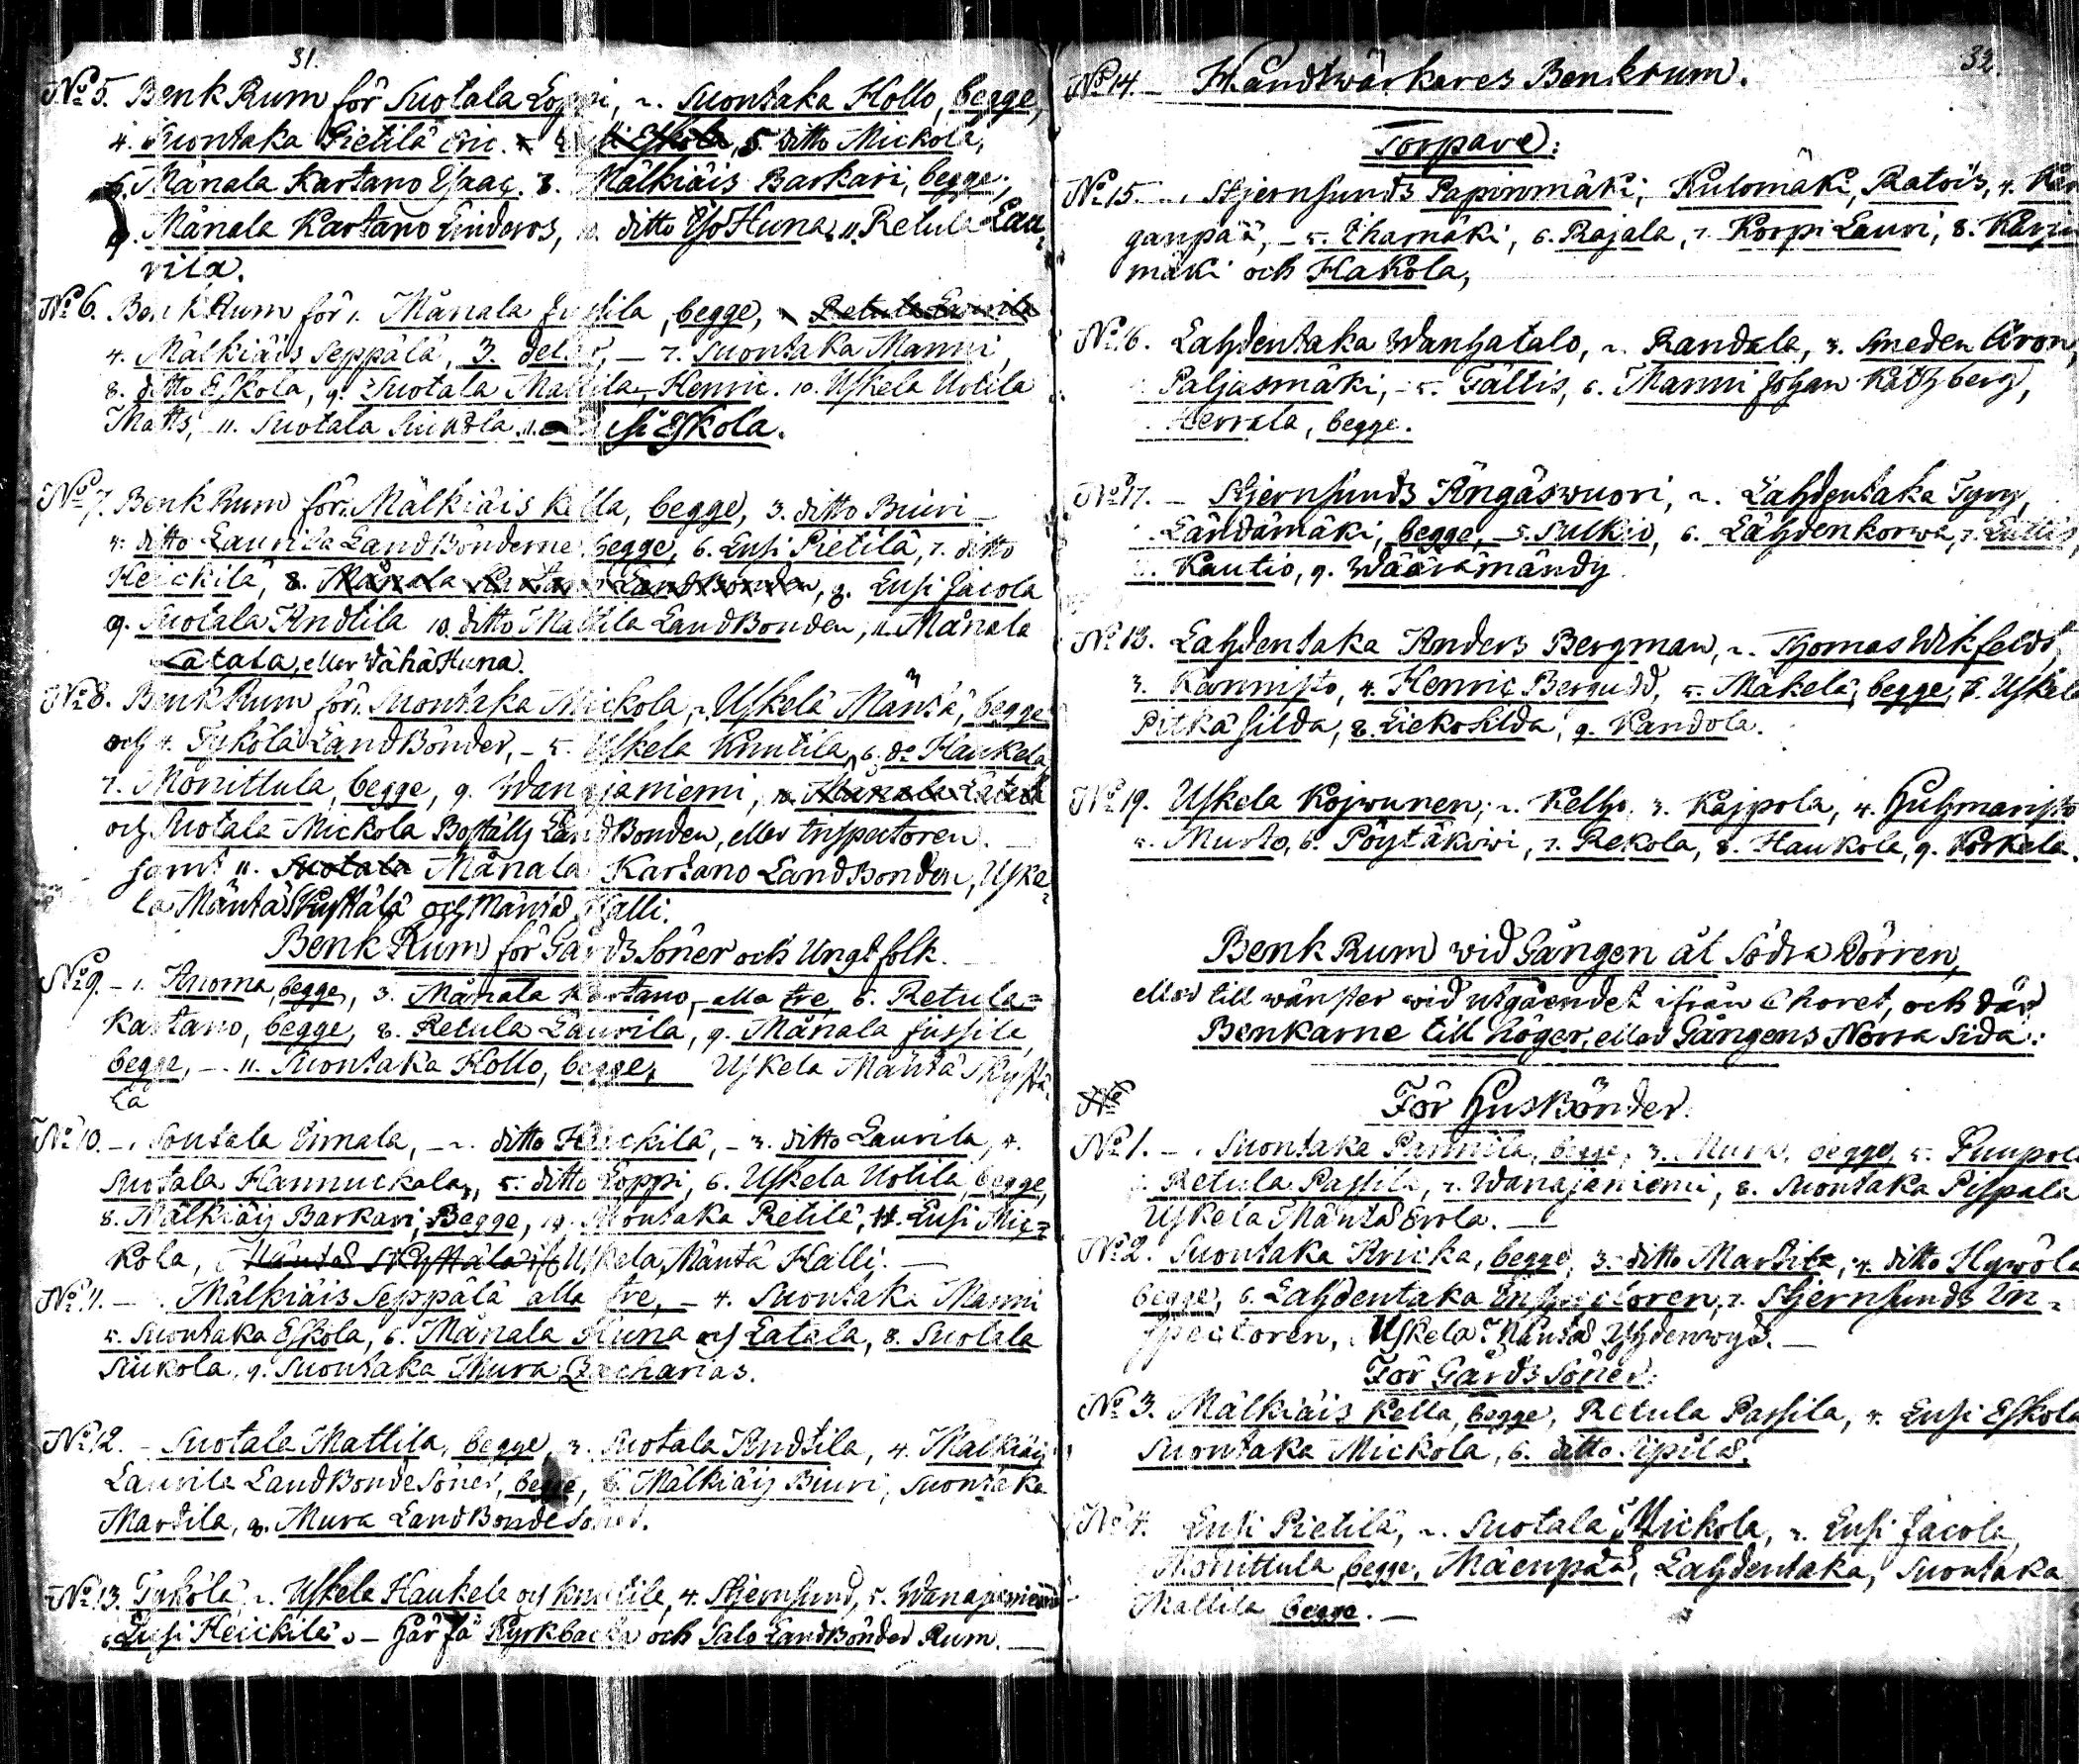 31.
No 5. Benk Rum för Suotala Loppi, 2. Suontaka Hollo, begge,
4. Suontaka Pietilä Eric. 5. ditto Mickola,
6. Månala Kartano Isaac. 8. Mälkiäis Barkari, begge,
9. Månala Kartano Einderos, 10. ditto Iso Huna, 11. Retula Lau-
rila.
No 6. Benk Rum för 1. Månala Jussila, begge, Retula Laurila
4. Mälkiäis Seppälä, 3. delar, – 7. Suontaka Manni,
8. ditto Eskola, 9. Suotala Mattila, Henric. 10. Uskela Uotila
Matts, 11. Suotala Siukola, Lusi Eskola.
No 7. Benk Rum för 1. Mälkiäis Kella, begge, 3. ditto Biuri –
4. ditto Laurila LandBönderne begge, 6. Lusi Pietilä, 7. ditto
Heickilä, 8. Månala Kartano LandBonden, 8. Lusi Jacola
9. Suotala Andtila 10. ditto Mattila LandBonden, 11. Månala
Latala, eller Wähä Huna.
No 8. Benk Rum för 1. Suontaka Mickola, 2. Uskela Mäntä, begge
och 4. Tykölä LandBönder, – 5. Uskela Knutila, 6. do Haukela,
7. Monittula, begge, 9. Wanajaniemi, 10. Månala Latala
och Suotala Mickola Boställs LandBonden, eller Inspectoren. –
samt 11. Suotala Månala Kartano LandBonden, Uske-
la Mäntä Skyttälä och Mäntä Halli.
Benk Rum för Gårds Söner och Ungt folk.
No 9. – 1. Anoma, begge, 3. Månala Kartano, alla tre, 6. Retula=
Kartano, begge, 8. Retula Laurila, 9. Månala Jussila,
begge, – 11. Suontaka Hollo, begge, Uskela Mäntä Skyttä-
lä
No 10. – 1. Sontala Eimala, – 2. ditto Heickilä, – 3. ditto Laurila, 4.
Suotala Hannuckala, 5. ditto Loppi, 6. Uskela Uotila, begge,
8. Mälkiäis Barkari, Begge, 10. Suontaka Pietilä, 11. Lusi Mic=
kola, Mäntä Skyttälä Uskela, Mäntä Halli. –
No 11. – 1. Mälkiäis Seppälä alla tre, – 4. Suontaka Manni
5. Suontaka Eskola, 6. Månala Huna och Latala, 8. Suotala
Siukola, 9. Suontaka Mura Zacharias.
No 12. – Suotala Mattila, begge, 3. Suotala Andtila, 4. Mälkiäis
Laurila LandBonde Söner, begge, 6. Mälkiäis Biuri, Suontaka
Martila, 8. Mura LandBonde Söner.
No 13. Tykölä, 2. Uskela Haukela och Knutila, 4. Stjernsund, 5. Wanajaniemi
6. Lusi Heickilä. – Här få Kyrkbacka och Salo LandBönder Rum. –
32.
No 14. – Handtwärkares Benkrum.
Torpare:
No 15. – 1. Stjernsunds Papinmäki, Kulomäki, Ratois, 4. Kan
ganpää, – 5. Ihamäki, 6. Rajala, 7. Korpi Lauri, 8. Karju
mäki och Hakola,
No 16. Lahdentaka Wanhatalo, 2. Randala, 3. Smeden Aron,
Paljasmäki, – 5. Tättis, 6. Manni Johan Kätzberg,
Herrala, begge.
No 17. – Stjernsunds Ängäswuori, 2. Lahdentaka Tyry,
Ländämäki, begge, – 5. Sulkio, 6. Lähdenkorwa, 7. Luttis,
8. Kautio, 9. Wäärämändy
No 18. Lahdentaka Anders Bergman, 2. Thomas Wikfeldt,
3. Kannisto, 4. Henric Bergudd, 5. Mäkelä, begge, 7. Uskela
Pitkäsilda, 8. Liekosilda, 9. Kandola.
No 19. Uskela Kojwunen, 2. Kelho, 3. Kajpola, 4. Huhmaristo
5. Musto, 6. Pöytäkiwi, 7. Rekola, 8. Haukola, 9. Korkala.
Benk Rum wid Gången åt Södra Dörren,
eller till wänster wid utgåendet ifrån Choret, och där
Benkarne till höger, eller Gångens Norra Sida:
För Husbönder.
No 1. – 1. Suontaka Pannila, begge, 3. Mura, begge, 5. Puupola
Retula Passila, 7. Wanajaniemi, 8. Suontaka Pispala
Uskela Mäntä Erola. –
No 2. Suontaka Kricka, begge, 3. ditto Martila, 4. ditto Hywölä
begge, 6. Lahdentaka Inspectoren, 7. Stjernsunds In-
spectoren, Uskela Mäntä Yhdenwyö. –
För Gårds Söner:
No 3. Mälkiäis Kella, begge, Retula Passila, 4. Lusi Eskola
Suontaka Mickola, 6. ditto Sipilä.
No 4. Lusi Pietilä, 2. Suotala Mickola, 3. Lusi Jacola,
Monittula, begge, Mäenpää, Lahdentaka, Suontaka
Mallila begge. –